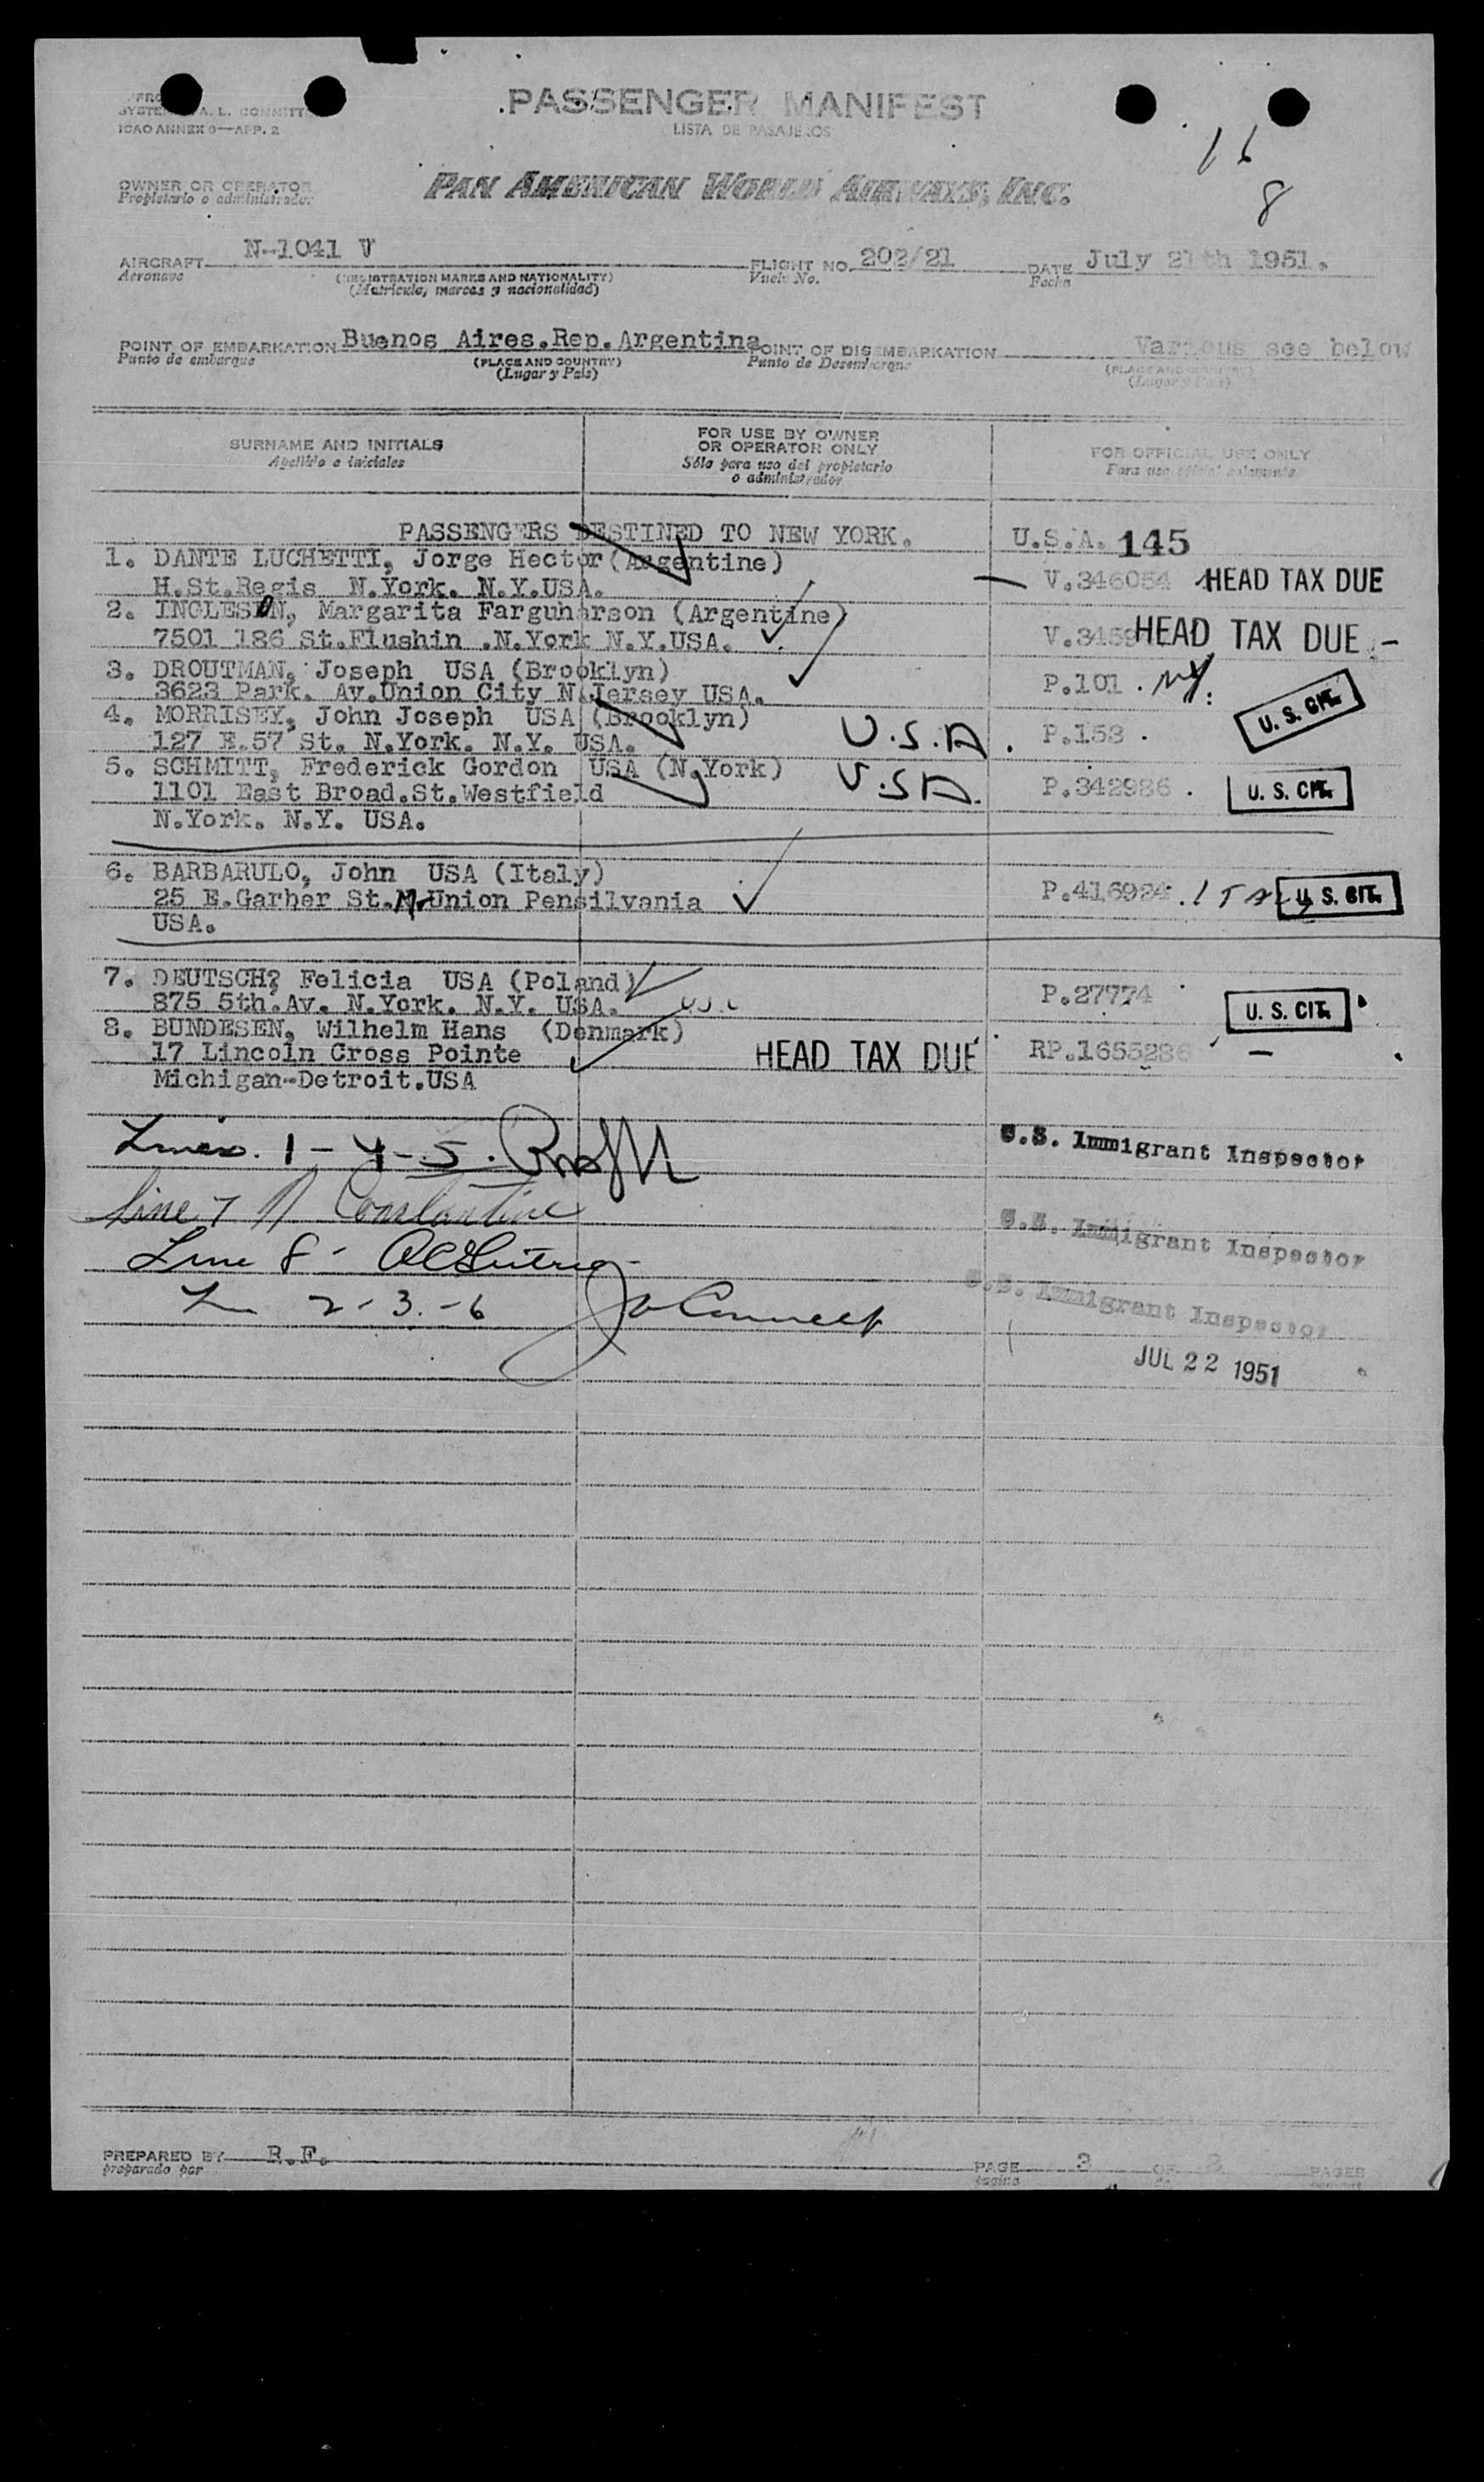 PASSENGER MANIFEST
LISTA DE PASAJEROS
ICAO ANNEX 9—APP. 2
16
8
OWNER OR OPERATOR
Propietario o administrador
PAN AMERICAN WORLD AIRWAYS, INC.
AIRCRAFT N-1041 V FLIGHT NO. 202/21 DATE July 21th 1951.
Aeronave (REGISTRATION MARKS AND NATIONALITY) Vuelo No. Fecha
(Matricula, marcas y nacionalidad)
POINT OF EMBARKATION Buenos Aires.Rep.Argentina POINT OF DISEMBARKATION Various see below
Punto de embarque (PLACE AND COUNTRY) Punto de Desembarque (PLACE AND COUNTRY)
(Lugar y Pais) (Lugar y Pais)
SURNAME AND INITIALS FOR USE BY OWNER OR OPERATOR ONLY FOR OFFICIAL USE ONLY
Apellido e iniciales Sólo para uso del propietario o administrador Para uso oficial solamente
PASSENGERS DESTINED TO NEW YORK. U.S.A. 145
1. DANTE LUCHETTI, Jorge Hector (Argentine)
H.St.Regis N.York. N.Y.USA. V.346054 HEAD TAX DUE
2. INGLESON, Margarita Farguharson (Argentine)
7501 186 St.Flushin .N.York N.Y.USA. V.3459 HEAD TAX DUE -
3. DROUTMAN, Joseph USA (Brooklyn)
3623 Park. Av.Union City N.Jersey USA. P.101 . NY. U. S. CIT.
4. MORRISEY, John Joseph USA (Brooklyn)
127 E.57 St. N.York. N.Y. USA. U.S.A. P.153 .
5. SCHMITT, Frederick Gordon USA (N.York)
1101 East Broad.St.Westfield U.S.A. P.342986 . U. S. CIT.
N.York. N.Y. USA.
6. BARBARULO, John USA (Italy)
25 E.Garher St. N. Union Pensilvania P.416924 . ITALY U. S. CIT.
USA.
7. DEUTSCH? Felicia USA (Poland)
875 5th.Av. N.York. N.Y. USA. P.27774 U. S. CIT.
8. BUNDESEN, Wilhelm Hans (Denmark)
17 Lincoln Cross Pointe HEAD TAX DUE RP.1655286 —
Michigan-Detroit.USA
Lines. 1-4-5.
U.S. Immigrant Inspector
Line 7 N Constantine
U.S. Immigrant Inspector
Line 8 -
U.S. Immigrant Inspector
2-3.-6
JUL 22 1951
PREPARED BY R.F. PAGE 3 OF 3 PAGES
preparado por pagina de